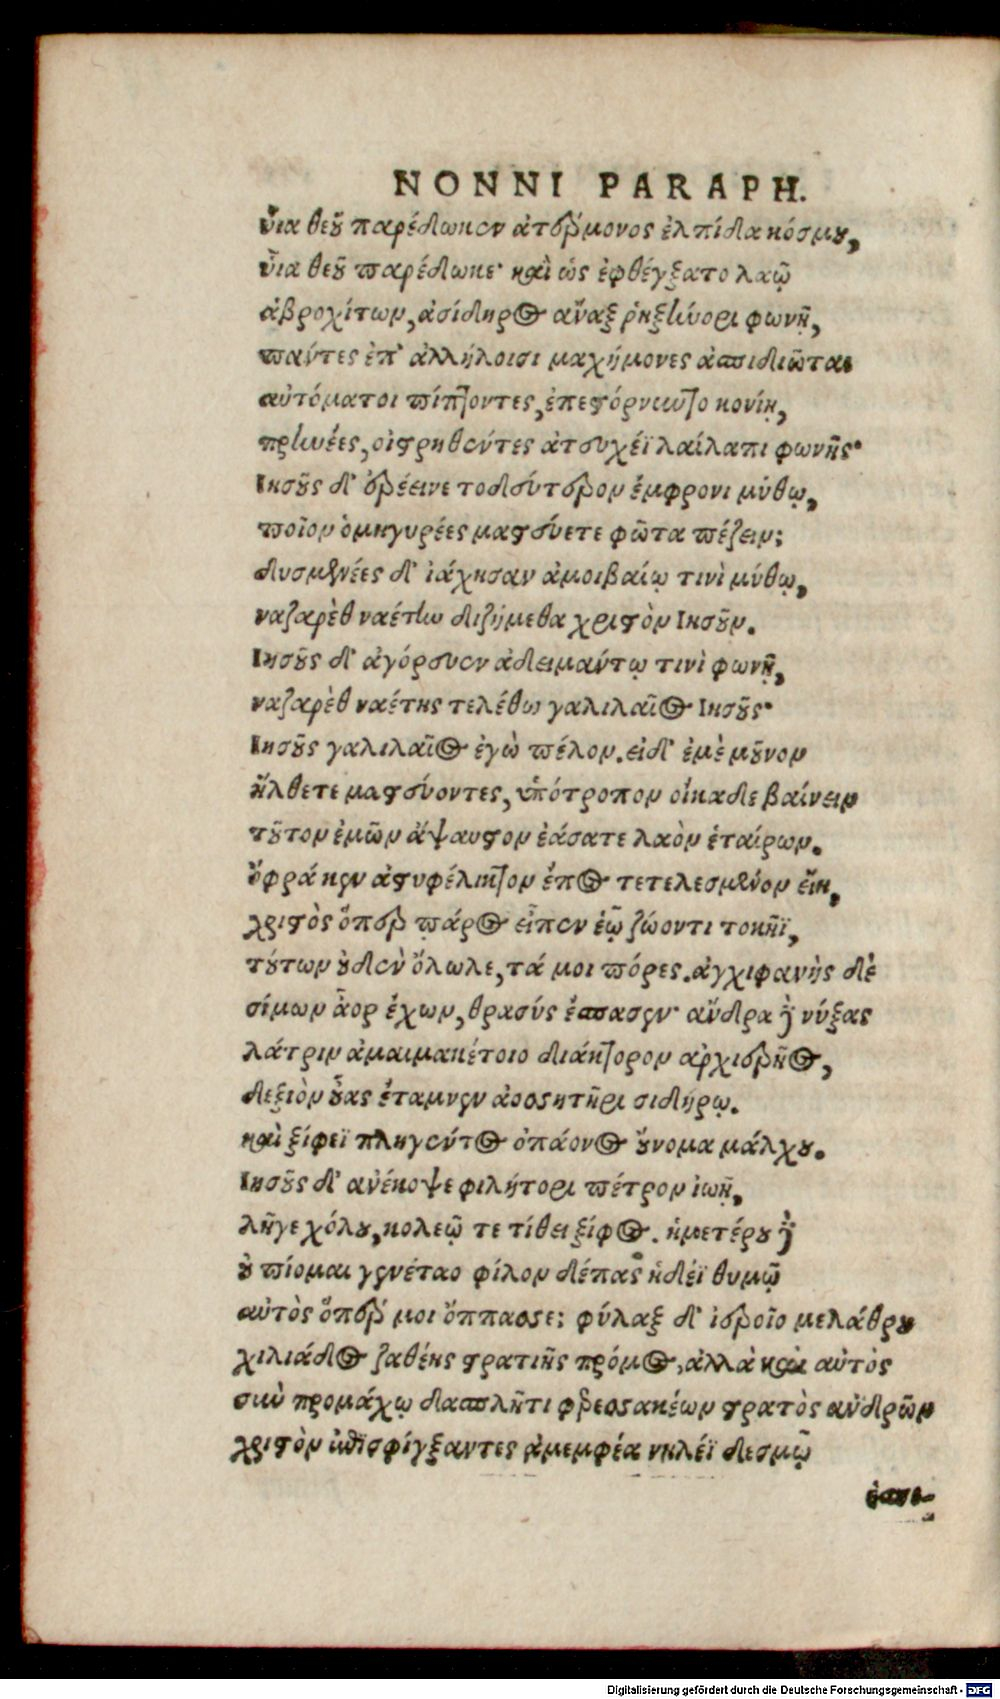 NONNI PARAPH.
υἷα θεοῦ παρέδωκεν ἀτέρμονος ἐλπίδα κόσμου,
υἷα θεοῦ παρέδωκε· καὶ ὡς ἐφθέγξατο λαῷ
ἁβροχίτων, ἀσίδηρος ἄναξ ῥηξήνορι φωνῇ,
πάντες ἐπ' ἀλλήλοισι μαχήμονες ἀσπιδιῶται
αὐτόματοι πίπτοντες, ἐπεστόρνυντο κονίῃ,
πρηνέες, οἰστρηθέντες ἀτευχέϊ λαίλαπι φωνῆς·
Ἰησοῦς δ' ἐρέεινε τοδεύτερον ἔμφρονι μύθῳ,
ποῖον ὁμηγυρέες μαστεύετε φῶτα πιέζειν;
δυσμενέες δ' ἰάχησαν ἀμοιβαίῳ τινὶ μύθῳ,
ναζαρὲθ ναέτην διζήμεθα χριστὸν Ἰησοῦν.
Ἰησοῦς δ' ἀγόρευεν ἀδειμάντῳ τινὶ φωνῇ,
ναζαρὲθ ναέτης τελέθω γαλιλαῖος Ἰησοῦς·
Ἰησοῦς γαλιλαῖος ἐγὼ πέλον. εἰδ' ἐμὲ μοῦνον
ἤλθετε μαστεύοντες, ὑπότροπον οἴκαδε βαίνειν
τοῦτον ἐμῶν ἄψαυστον ἐάσατε λαὸν ἑταίρων.
ὄφρά κεν ἀστυφέλικτον ἔπος τετελεσμένον εἴη,
χριστὸς ὅπερ πάρος εἶπεν ἑῷ ζώοντι τοκῆϊ,
τούτων οὐδὲν ὄλωλε, τά μοι πόρες. ἀγχιφανὴς δὲ
σίμων ἆορ ἔχων, θρασὺς ἔσπασεν· ἄνδρα δὲ νύξας
λάτριν ἀμαιμακέτοιο διάκτορον ἀρχιερῆος,
δεξιὸν οὖας ἔταμνεν ἀοσσητῆρι σιδήρῳ.
καὶ ξίφεϊ πληγέντος ὀπάονος οὔνομα μάλχου.
Ἰησοῦς δ' ἀνέκοψε φιλήτορι πέτρον ἰωῇ,
λῆγε χόλου, κολεῷ τε τίθει ξίφος. ἡμετέρου δὲ
οὐ πίομαι γενέταο φίλον δέπας ἡδέϊ θυμῷ
αὐτὸς ὅπερ μοι ὄππασσε; φύλαξ δ' ἱεροῖο μελάθρου
χιλιάδος ζαθέης στρατιῆς πρόμος, ἀλλὰ καὶ αὐτὸς
σὺν προμάχῳ δασπλῆτι φερεσσακέων στρατὸς ἀνδρῶν
χριστὸν ἐπισφίγξαντες ἀμεμφέα νηλέϊ δεσμῷ
Digitalisierung gefördert durch die Deutsche Forschungsgemeinschaft - DFG